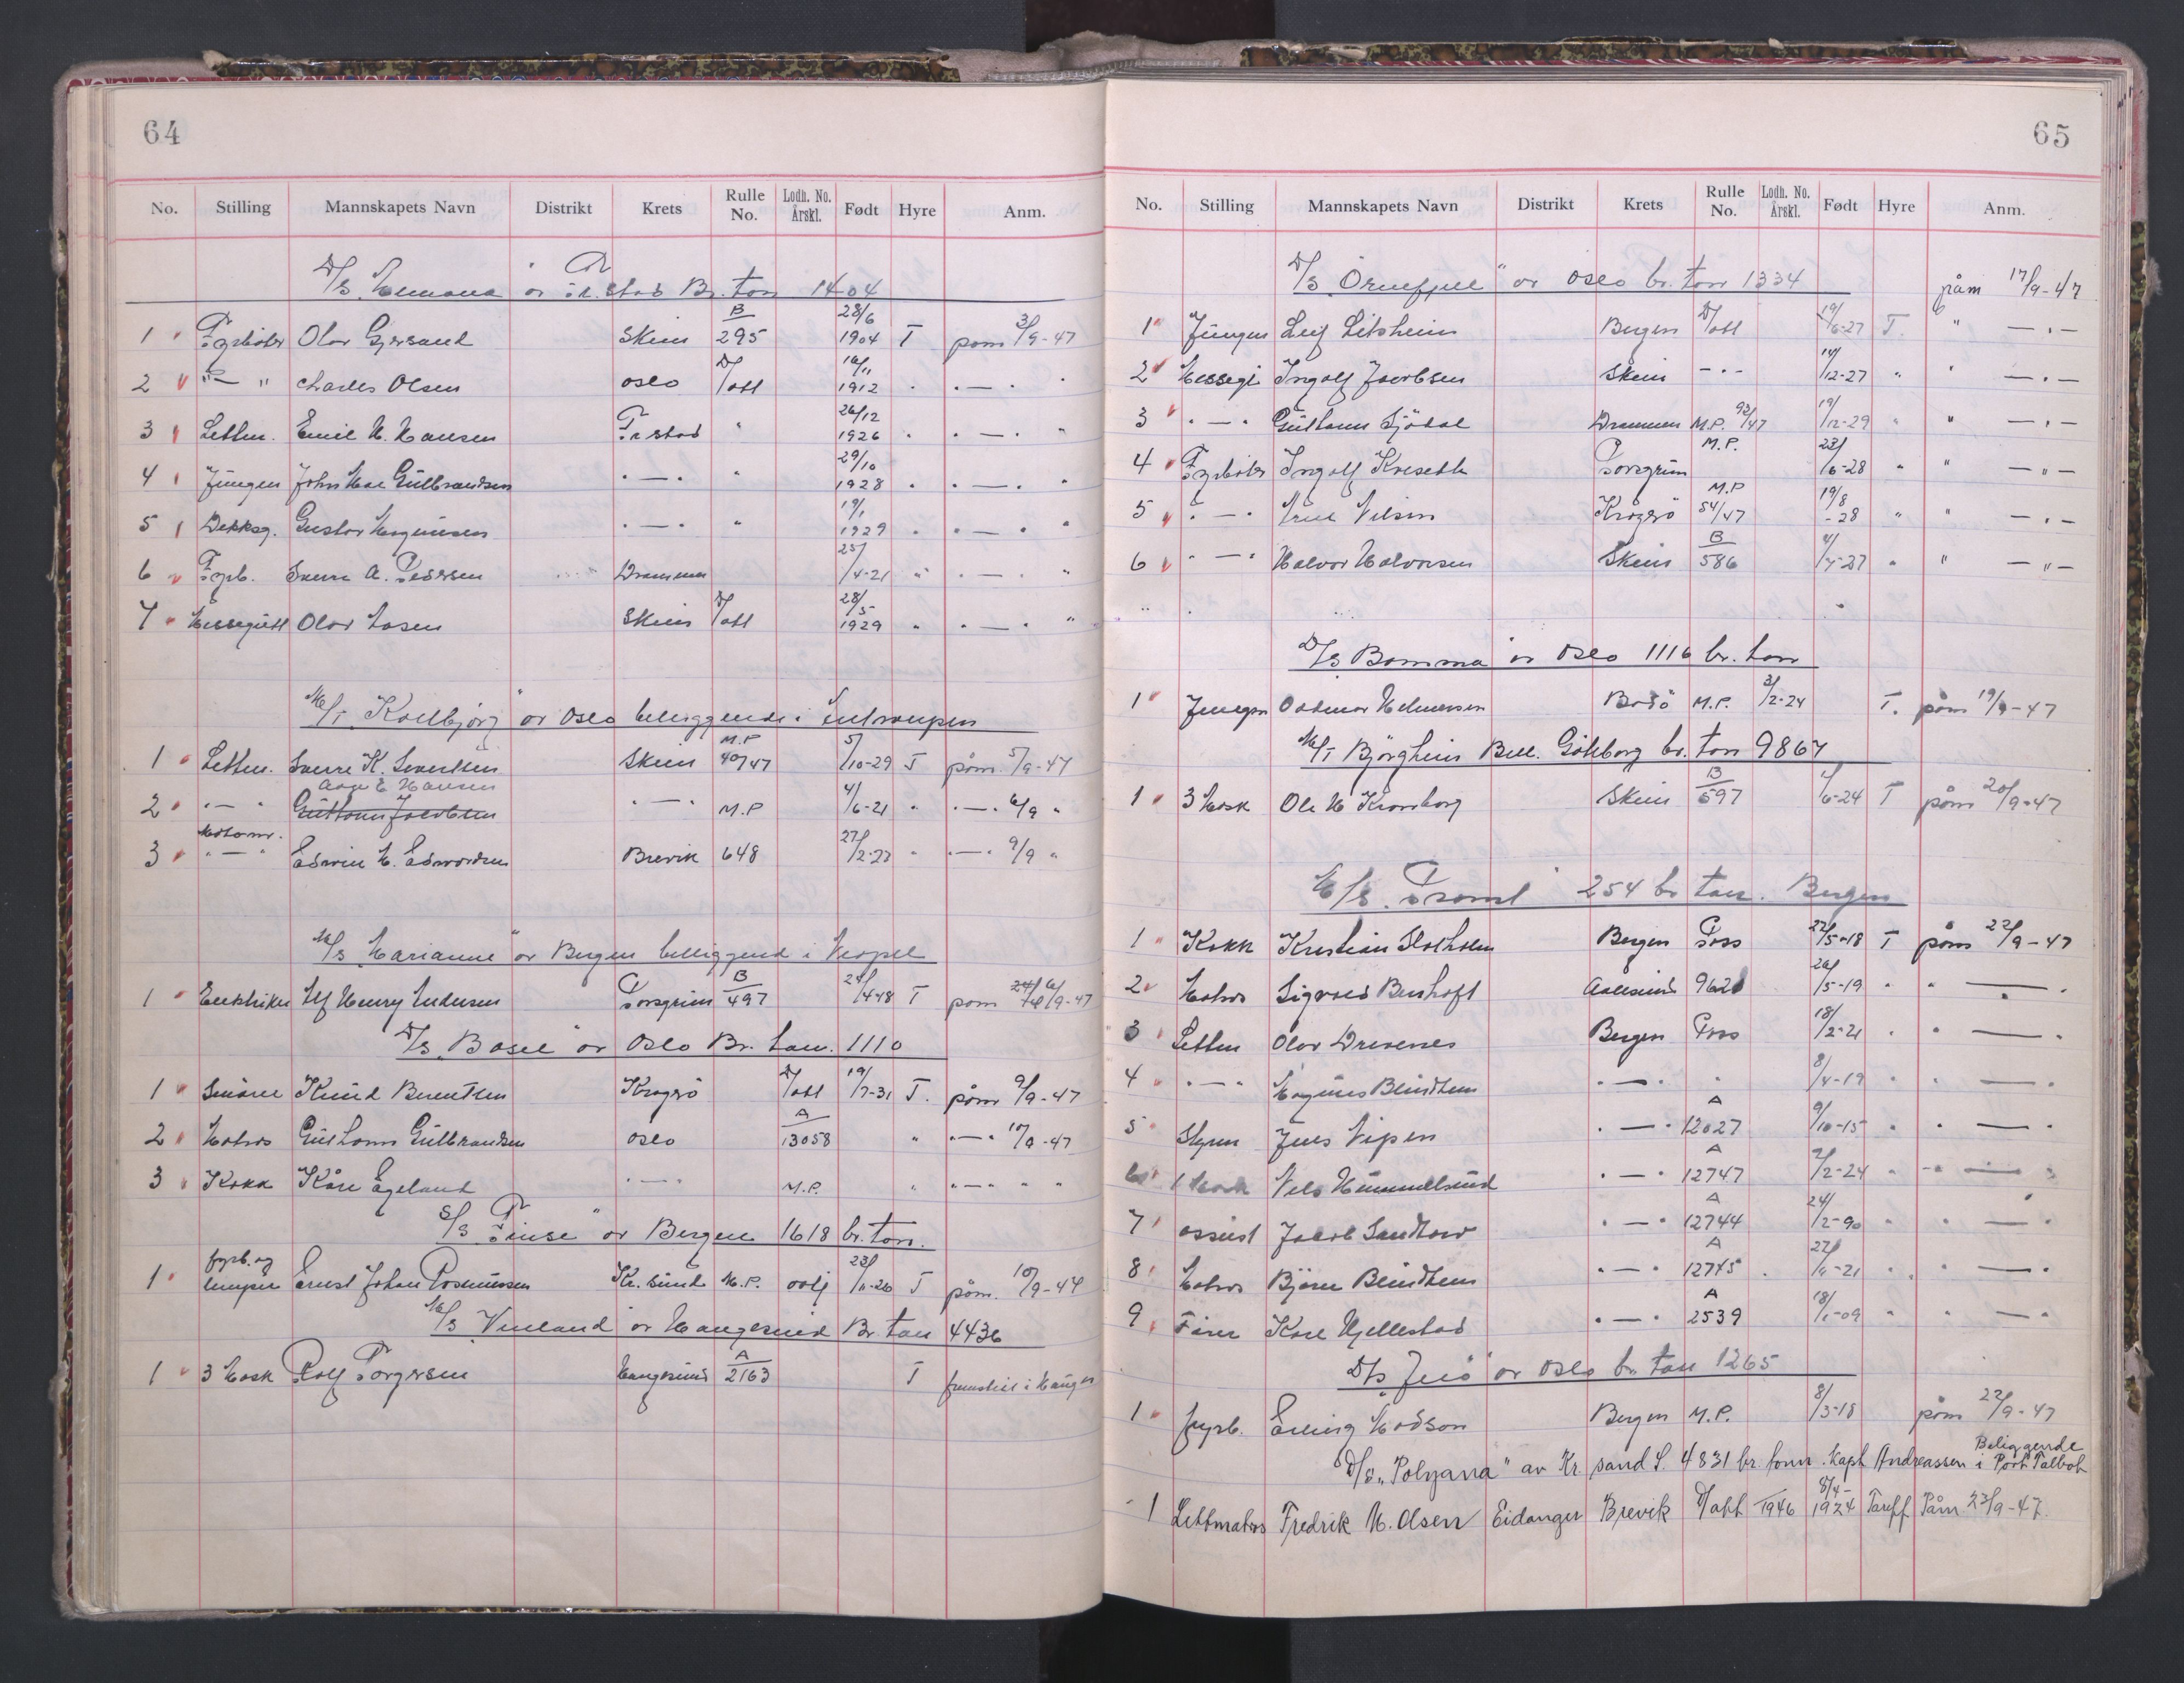 64
No. Stilling Mannskapets Navn Distrikt Krets Rulle No. Lodh. No. Årskl. Født Hyre Anm.
D/S av Fr.stad Br. ton 1404
1 Fyrböter Olav Skien B 295 28/6 1904 T påm 3/9-47
2 " — " Charles Olsen Oslo D/att 16/11 1912 " " — " "
3 Lettm. Emil H. Hansen Fr.stad " 26/12 1926 " " — " "
4 Jungm John Gulbrandsen " — " " 29/10 1928 " " — " "
5 Dekksg. Gustav Magnussen " — " " 19/1 1929 " " — " "
6 Fyrb. Sverre A. Pedersen Drammen 25/4-21 " " — " "
7 Messegutt Olav Skien D/att 28/5 1929 " " — " "
M/T "Kollbjörg" av Oslo beliggende i Antwerpen
1 Lettm. Sverre K. Skien M.P 40/47 5/10-29 T påm. 5/9-47
Aage E Hansen
2 " — " Guttorm Jacobsen " — " M.P 4/6-21 " " — " 6/9 "
3 Motorm. " — " Edwin Brevik 648 27/2-23 " " — " 9/9 "
M/S "Marianne" av Bergen beliggend i
1 Elektriker Henry Andersen Porsgrunn B 497 T påm 9-47
D/S "Basel" av Oslo Br. ton. 1110
1 Knud Berentsen Kragerö D/att 19/7-31 T. påm 9/9-47
2 Matros Guthorm Gulbrandsen Oslo A 13058 " " — " 10/9-47
3 Kokk Kåre Egeland " — " M.P. " " — " " "
S/S "Finse" av Bergen 1618 br. ton.
1 fyrb. og lemper Ernst Johan Rasmussen Kr. sund M.P. T påm. 10/9-47
M/S "Vinland" av Haugesund Br. ton 4436
1 3 Mask Rolf Torgersen Haugesund A 2163 T i Haugen
65
No. Stilling Mannskapets Navn Distrikt Krets Rulle No. Lodh. No. Årskl. Født Hyre Anm.
D/S "Örnefjell" av Oslo br. ton 1334 påm 17/9-47
1 Jungm Leif Bergen D/att 19/6-27 T. " — " —
2 Messegt. Ingolf Jacobsen Skien — " — 14/12-27 " " — " —
3 " — " Guttorm Sjödal Drammen M.P. 92/47 19/12-29 " " — " —
4 Fyrböter Ingolf Kviseth Porsgrunn M.P. 23/6-28 " " — " —
5 " — " Arne Nilsen Kragerö M.P 54/47 19/8-28 " " — " —
6 " — " Halvor Halvorsen Skien B 586 " " — " —
D/S "Bomma" av Oslo 1116 br. ton
1 Jungm Oddmar Bodö M.P. 3/2-24 T. påm 19/9-47
M/T Björgheim Bell. Göteborg br. ton 9867
1 3 Mask Ole H Kronborg Skien B 597 T påm 20/9-47
M/S "Troms" 254 br ton. Bergen
1 Kokk Kristian Slotholm Bergen Pass 22/5-18 T påm 22/9-47
2 Matros Sigvald Aalesund 9621 26/5-19 " " — "
3 Lettm Olav Drevenes Bergen Pass 18/2-21 " " — "
4 " — " Magnus Blindheim " — " " 8/4-19 " " — "
5 Styrm Jens Vipen " — " A 12027 9/10-15 " " — "
6 1 Mask Nels " — " A 12747 2/2-24 " " — "
7 assist Jakob " — " A 12744 24/2-90 " " — "
8 Matros Björn Blindheim " — " A 12745 " " — "
9 Förer Kåre Hjellestad " — " A 2539 18/1-09 " " — "
D/S "Jelö" av Oslo br. ton 1265
1 fyrb. Erling Madson Bergen M.P. 8/3-18 påm 22/9-47
D/S "Polyana" av Kr sand S. 4831 br. tonn. Kapt Andreassen Beliggende i Port Talbot
1 Lettmatros Fredrik H. Olsen Eidanger Brevik D/att 1946 8/4-1924 Tariff Påm 23/9-47.